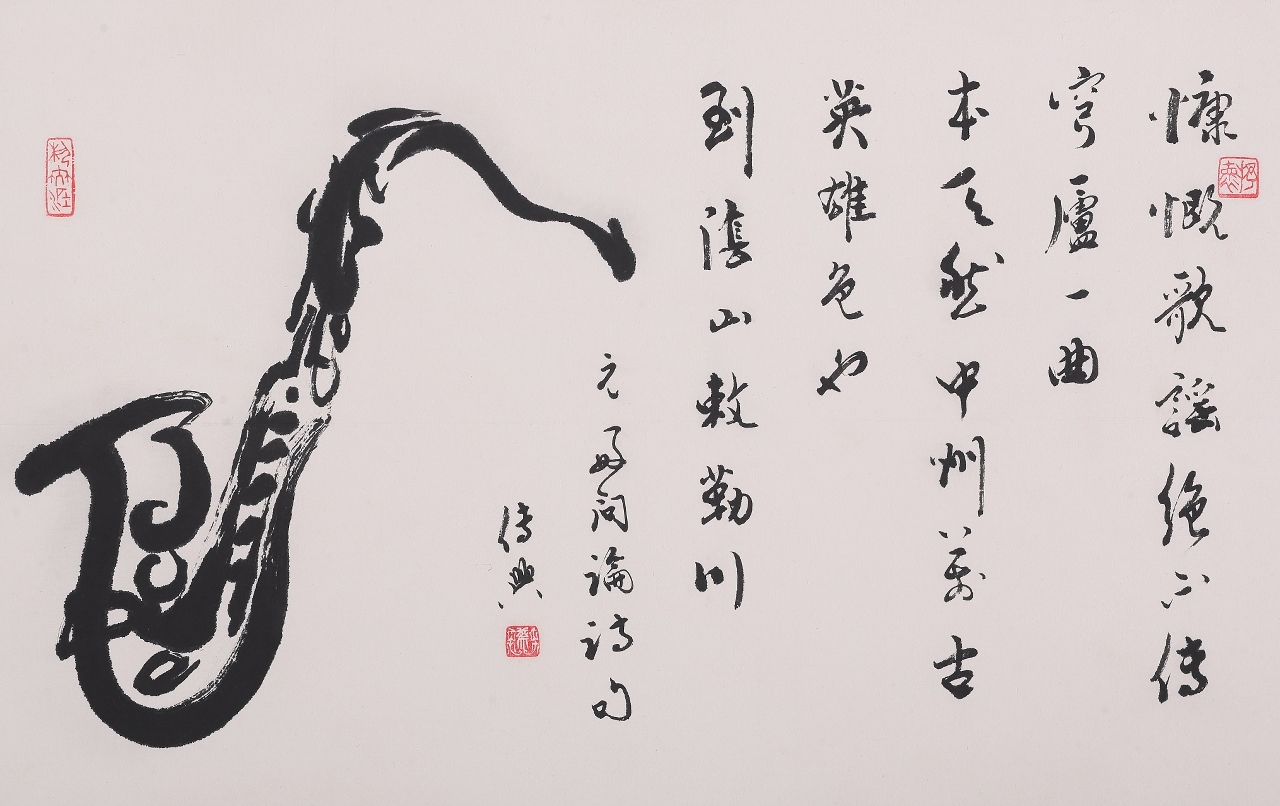 慷慨歌謠絕不傳
穹廬一曲
本天然中州萬古
英雄色也
到陰山敕勒川
元好問論詩句
傳興